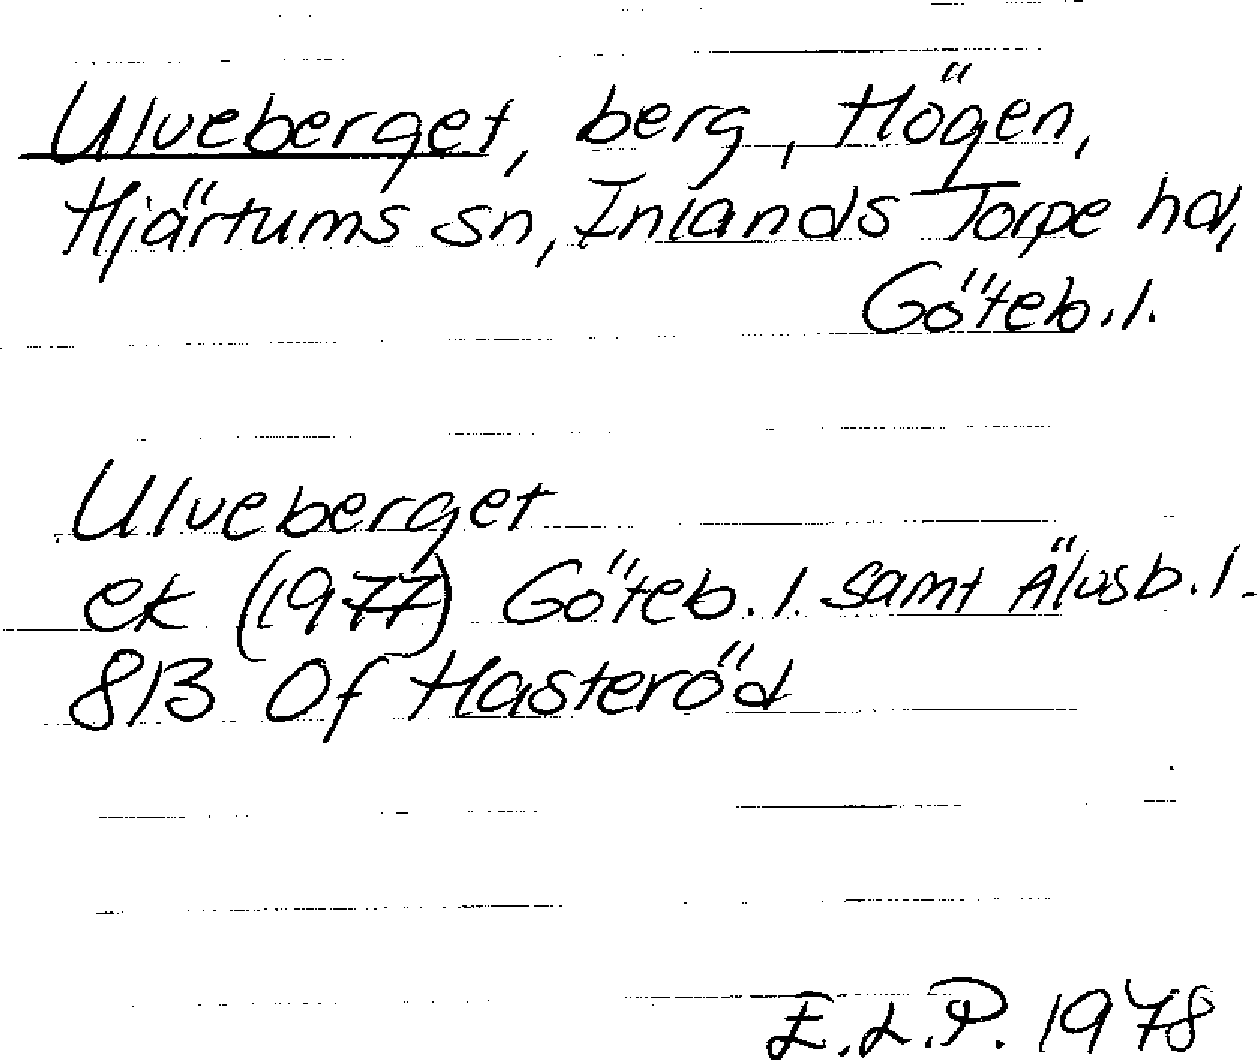 Ulveberget, berg, Högen,
Hjärtums sn, Inlands Torpe hd,
Göteb. l.
Ulveberget
ek (1977) Göteb. l. samt Älvsb. l.
8B 0f Hasteröd
E.L.P. 1978